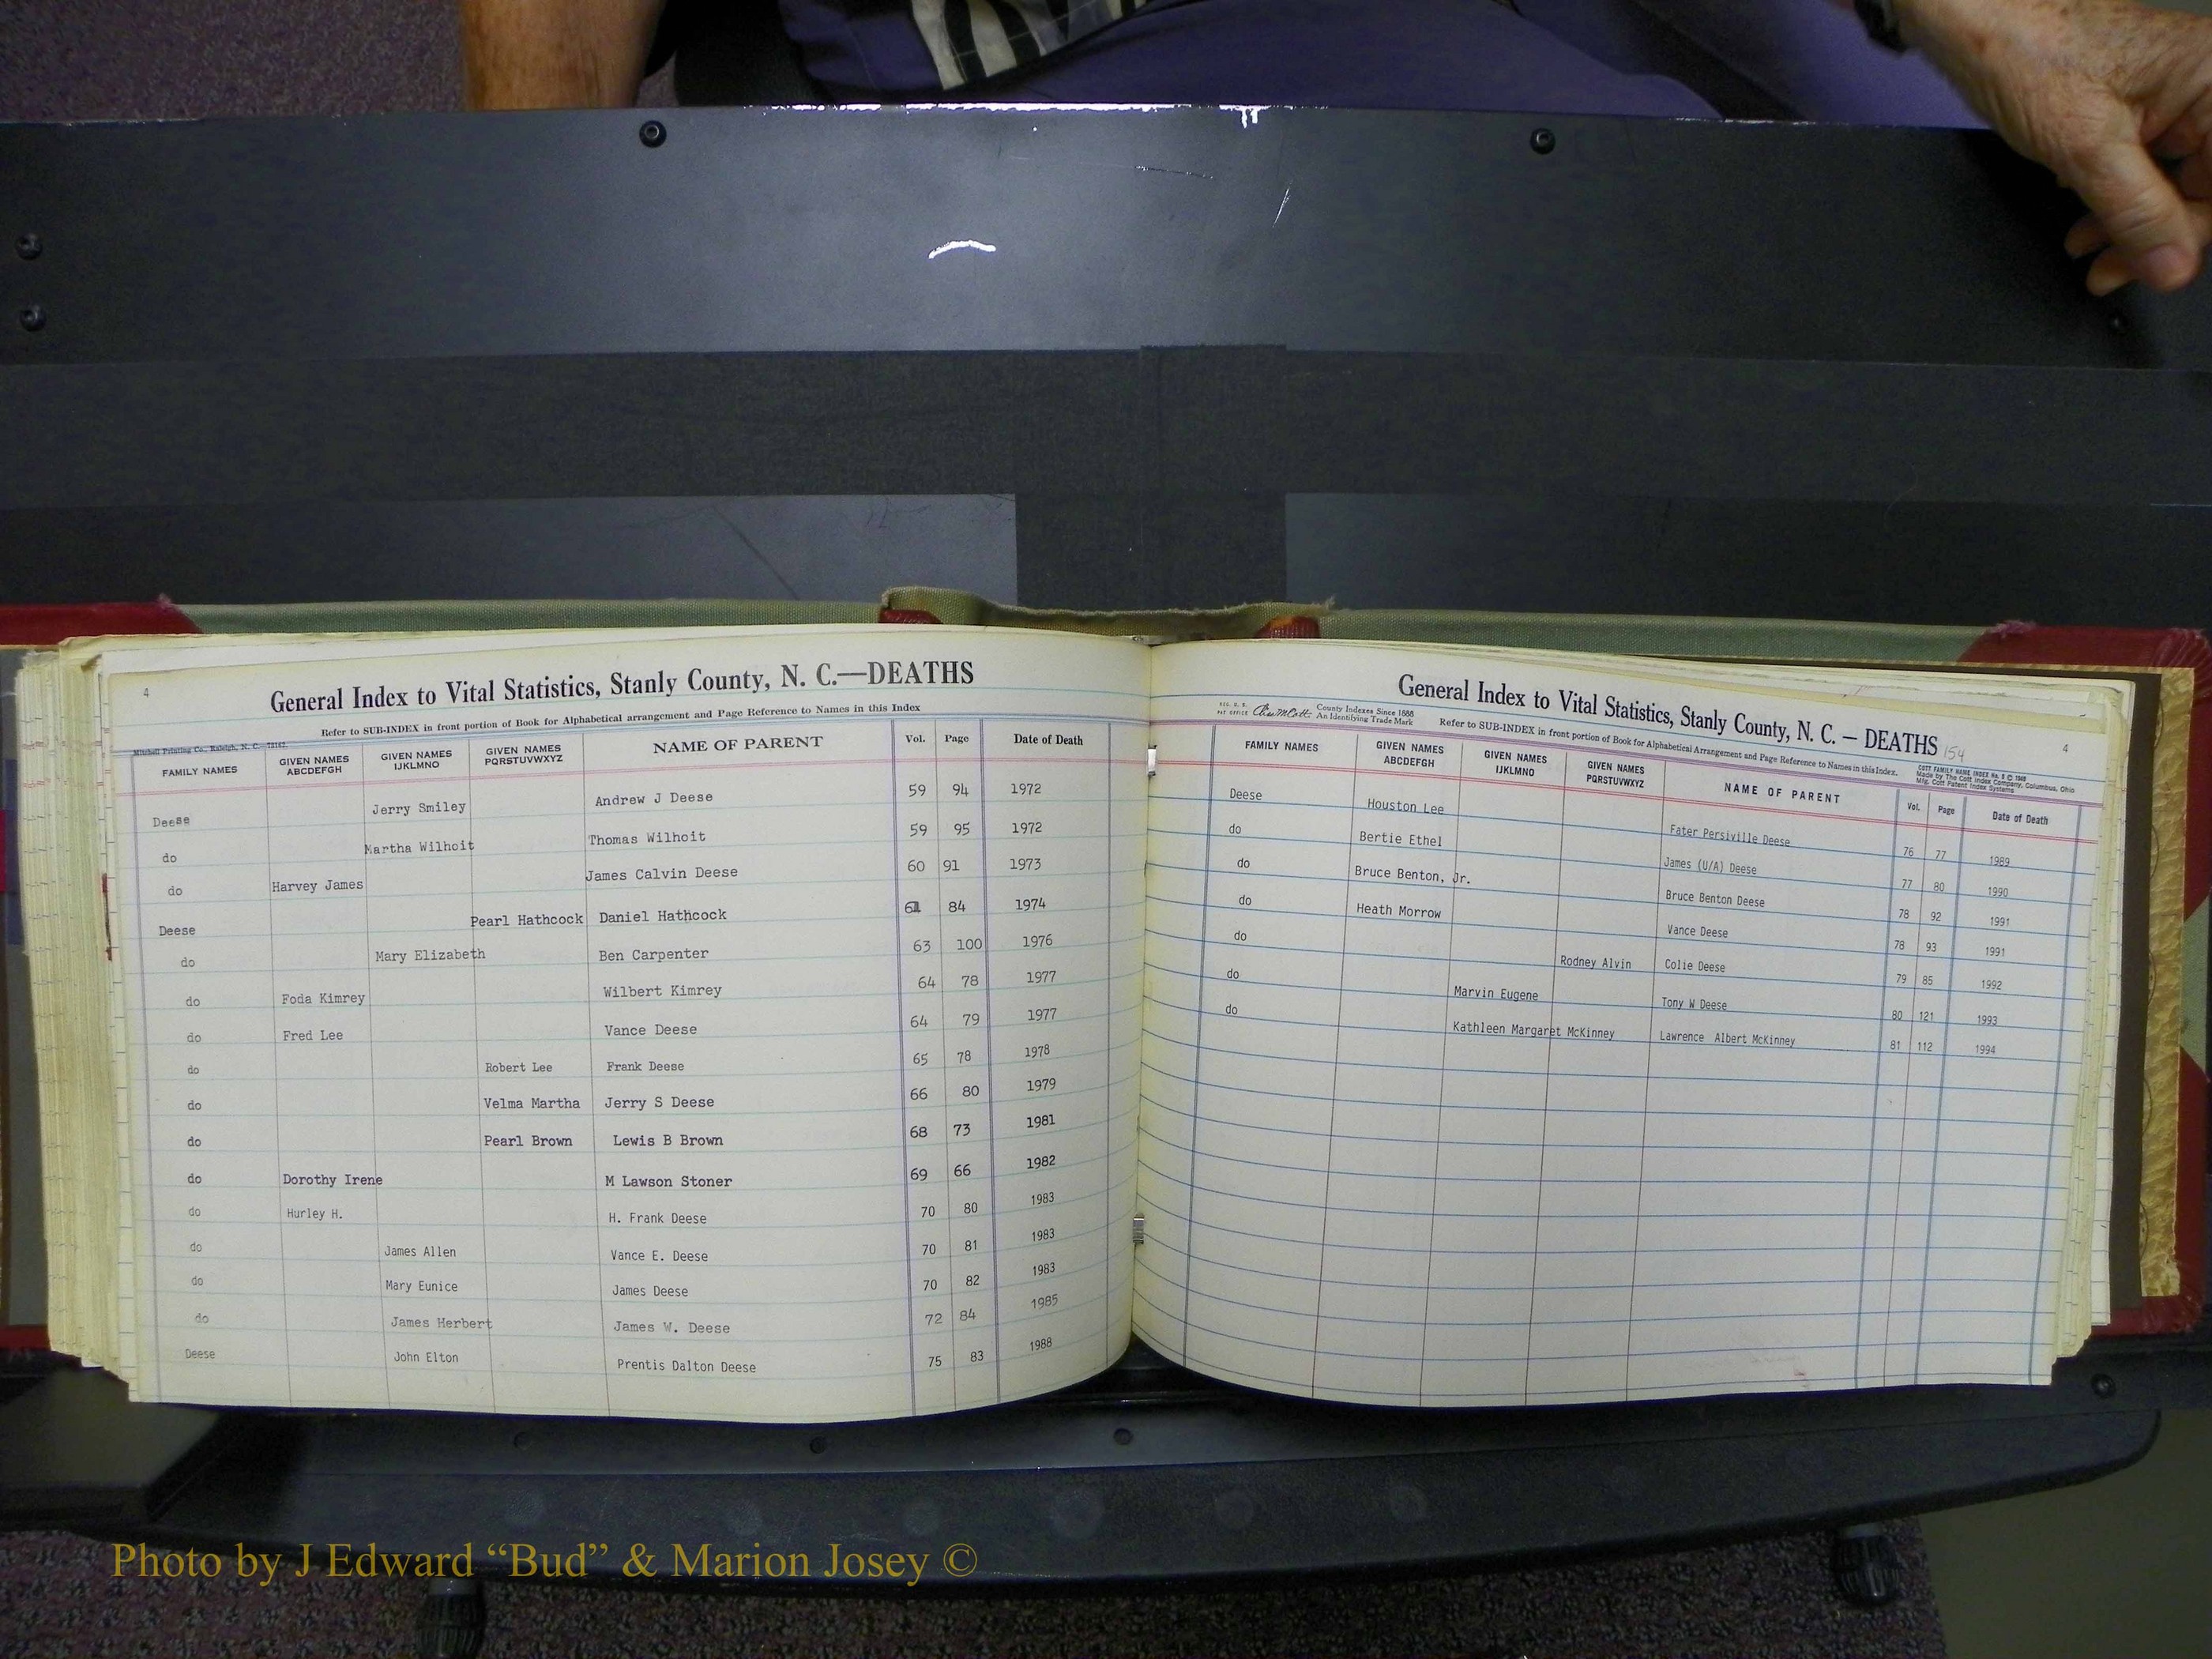 4
General Index to Vital Statistics, Stanly County, N. C.—DEATHS
Refer to SUB-INDEX in front portion of Book for Alphabetical arrangement and Page Reference to Names in this Index
Mitchell Printing Co., Raleigh, N. C.
FAMILY NAMES GIVEN NAMES ABCDEFGH GIVEN NAMES IJKLMNO GIVEN NAMES PQRSTUVWXYZ NAME OF PARENT Vol. Page Date of Death
Deese Jerry Smiley Andrew J Deese 59 94 1972
do Martha Wilhoit Thomas Wilhoit 59 95 1972
do Harvey James James Calvin Deese 60 91 1973
Deese Pearl Hathcock Daniel Hathcock 61 84 1974
do Mary Elizabeth Ben Carpenter 63 100 1976
do Foda Kimrey Wilbert Kimrey 64 78 1977
do Fred Lee Vance Deese 64 79 1977
do Robert Lee Frank Deese 65 78 1978
do Velma Martha Jerry S Deese 66 80 1979
do Pearl Brown Lewis B Brown 68 73 1981
do Dorothy Irene M Lawson Stoner 69 66 1982
do Hurley H. H. Frank Deese 70 80 1983
do James Allen Vance E. Deese 70 81 1983
do Mary Eunice James Deese 70 82 1983
do James Herbert James W. Deese 72 84 1985
Deese John Elton Prentis Dalton Deese 75 83 1988
General Index to Vital Statistics, Stanly County, N. C. — DEATHS 154
4
REG. U. S. PAT OFFICE County Indexes Since 1888 An Identifying Trade Mark
Refer to SUB-INDEX in front portion of Book for Alphabetical Arrangement and Page Reference to Names in this Index.
COTT FAMILY NAME INDEX No. 5 © 1948
Made by The Cott Index Company, Columbus, Ohio
Mfg. Cott Patent Index Systems
FAMILY NAMES GIVEN NAMES ABCDEFGH GIVEN NAMES IJKLMNO GIVEN NAMES PQRSTUVWXYZ NAME OF PARENT Vol. Page Date of Death
Deese Houston Lee Fater Persiville Deese 76 77 1989
do Bertie Ethel James (U/A) Deese 77 80 1990
do Bruce Benton, Jr. Bruce Benton Deese 78 92 1991
do Heath Morrow Vance Deese 78 93 1991
do Rodney Alvin Colie Deese 79 85 1992
do Marvin Eugene Tony W Deese 80 121 1993
do Kathleen Margaret McKinney Lawrence Albert McKinney 81 112 1994
Photo by J Edward “Bud” & Marion Josey ©